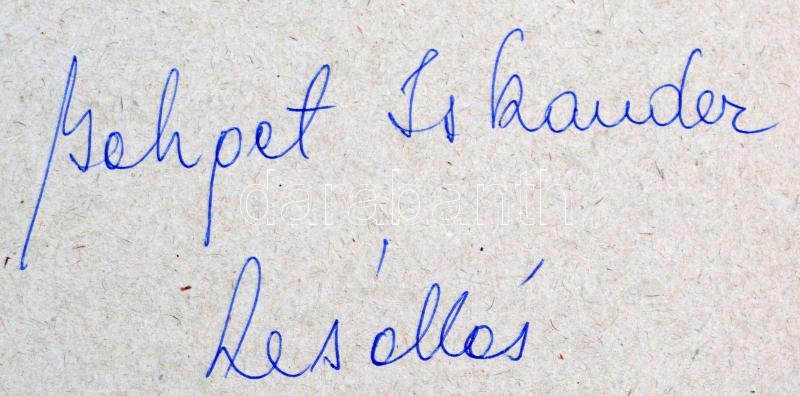 Behpet Iskander
darabanth
Lesállás